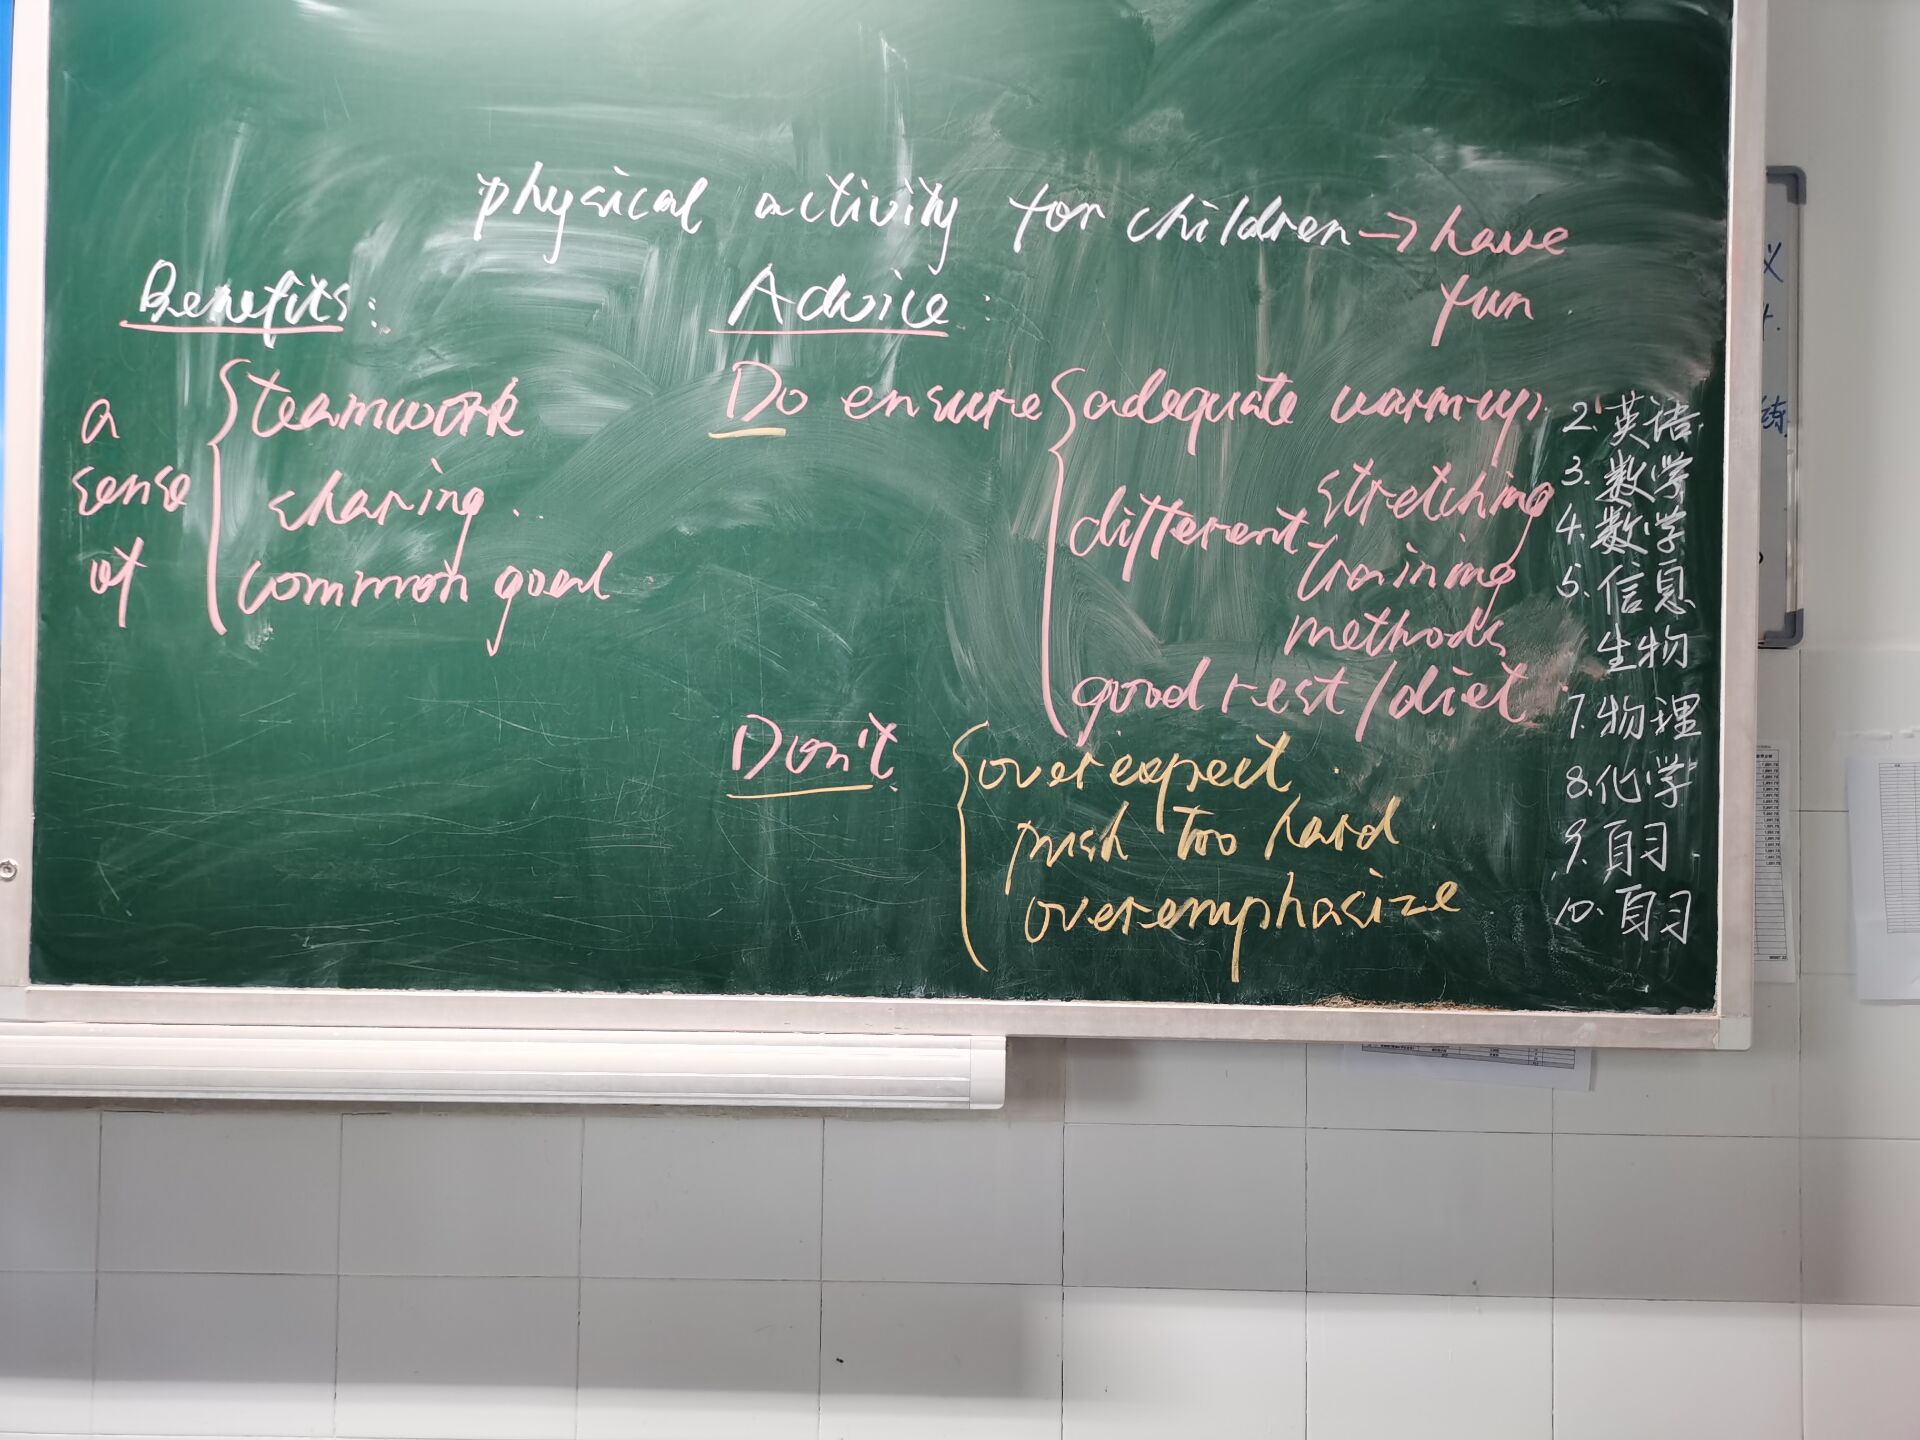 physical activity for children → have
fun
Benefits:
a sense of
teamwork
sharing
common goal
Advice:
Do ensure
adequate warm-up,
stretching
different training
methods
good rest/diet
Don't
overexpect
push too hard
overemphasize
2. 英语
3. 数学
4. 数学
5. 信息
生物
7. 物理
8. 化学
9. 自习
10. 自习
练